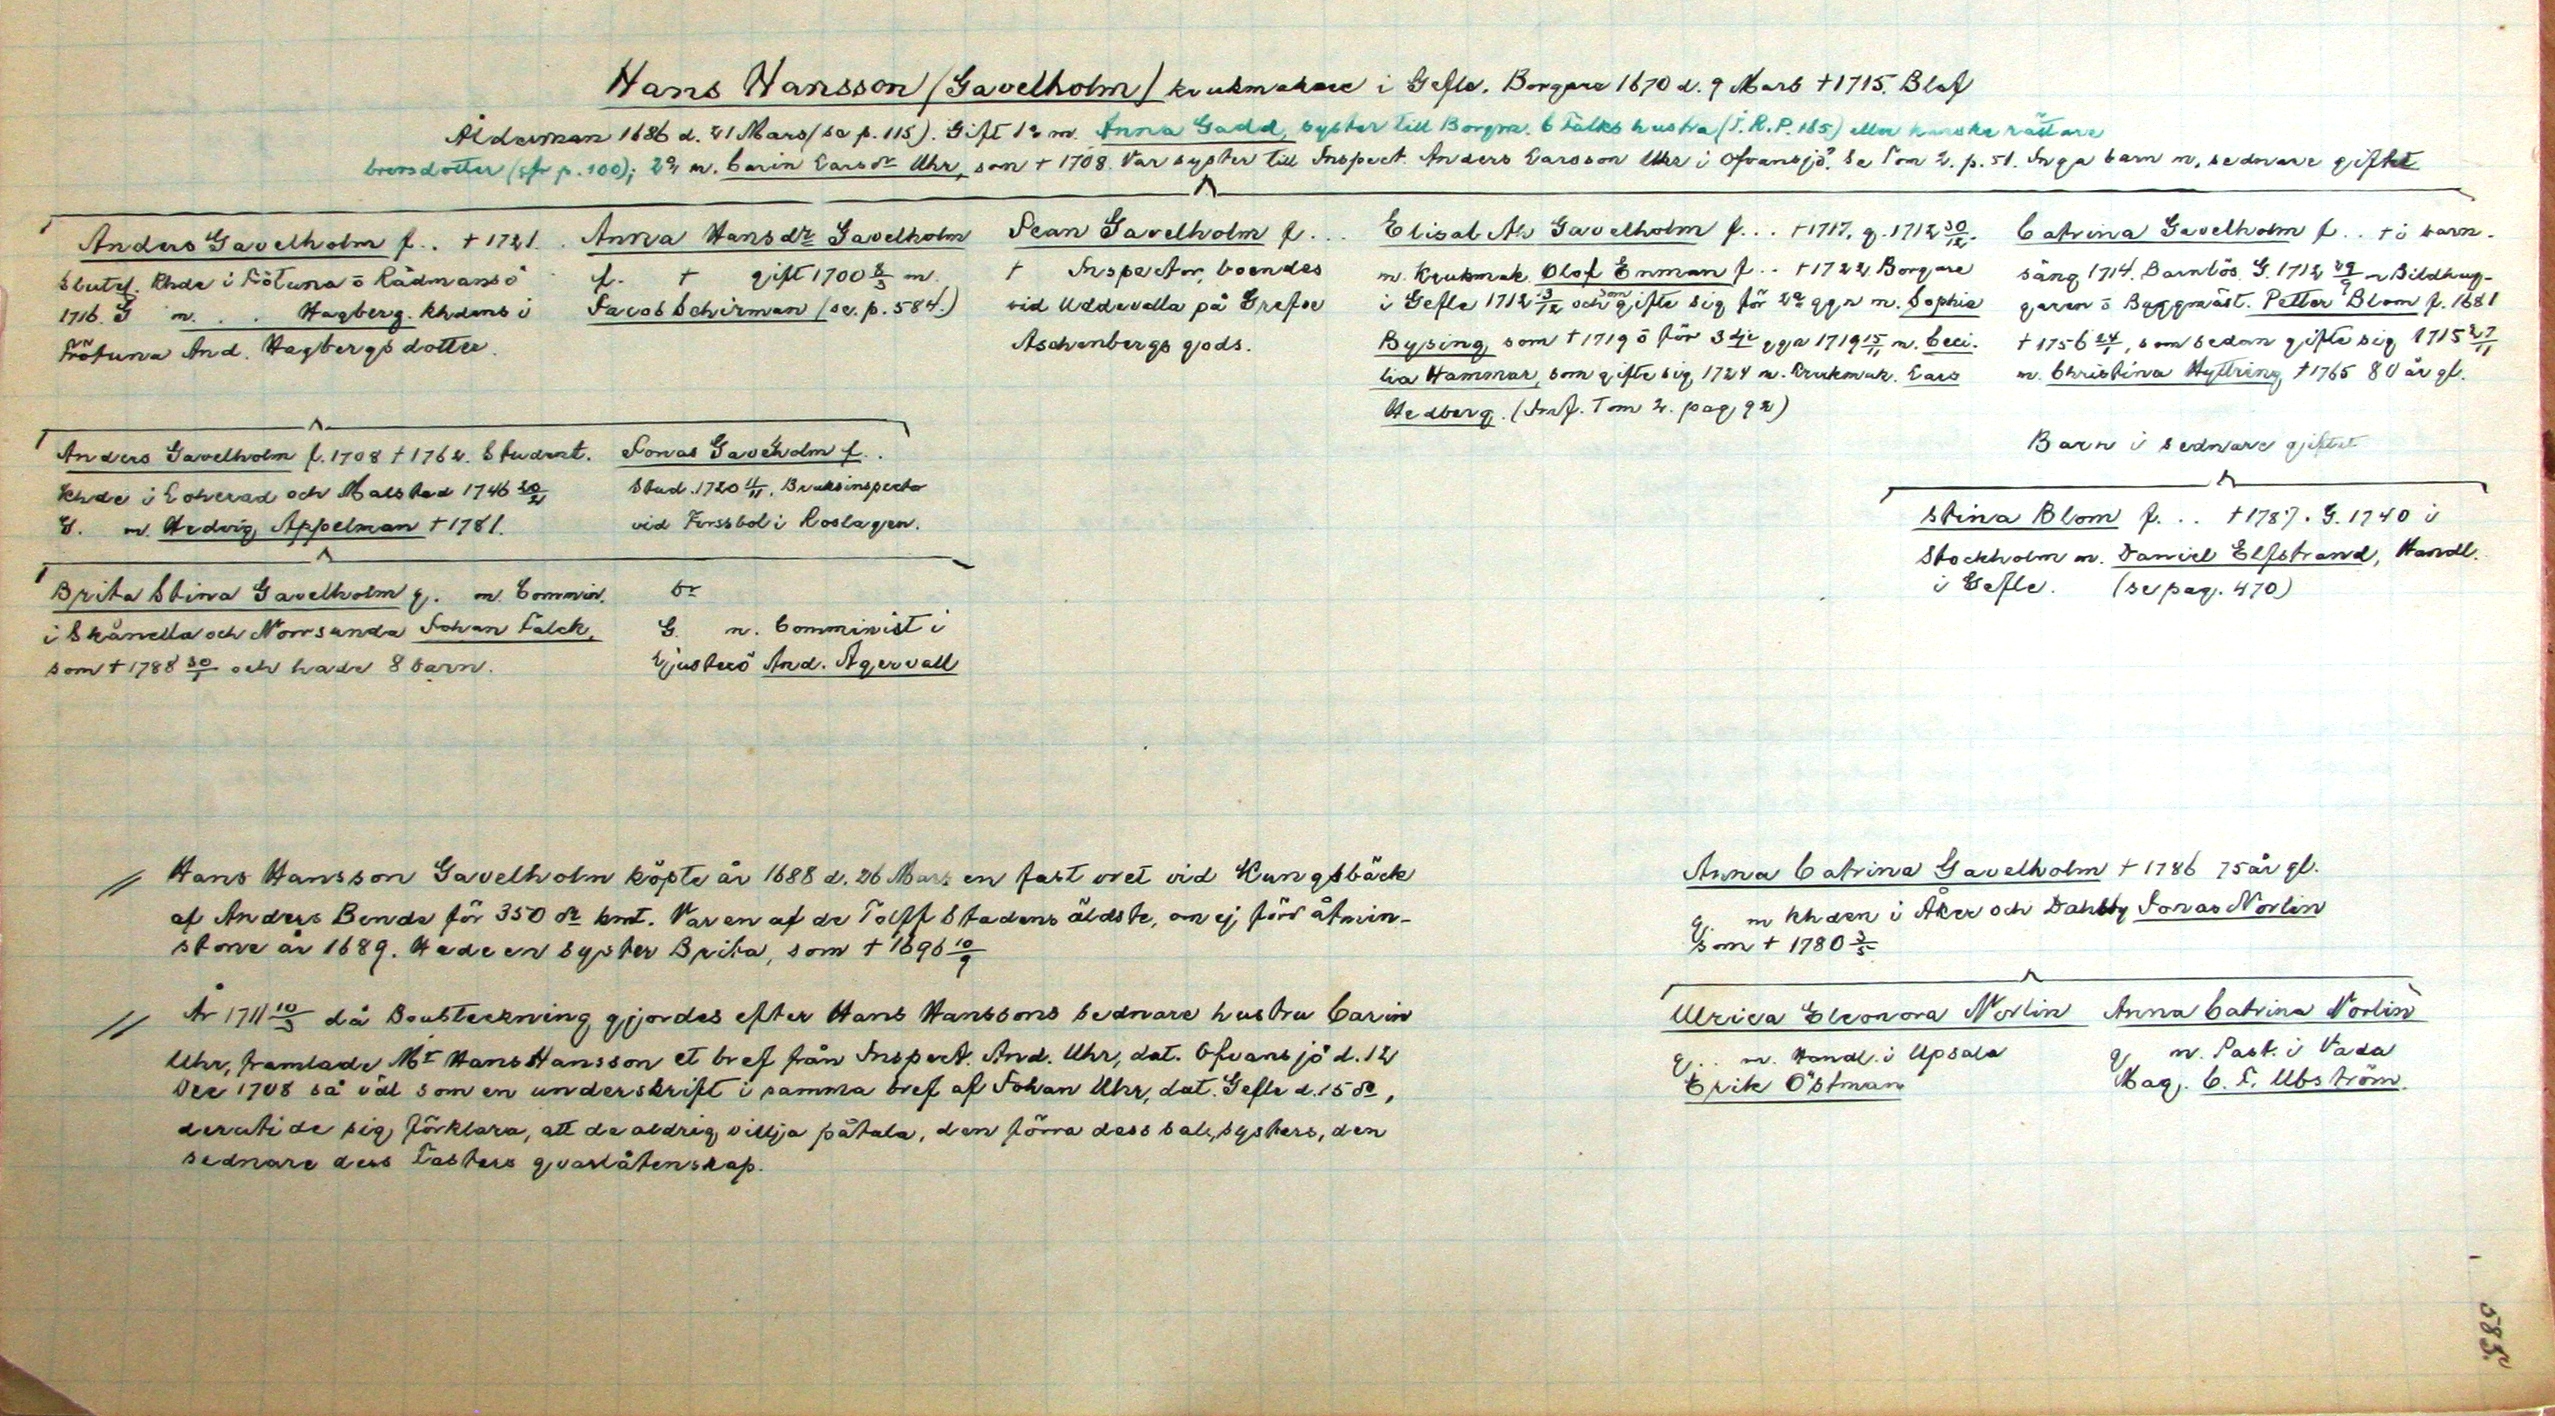 Hans Hansson (Gavelholm) krukmakare i Gefle. Borgare 1670 d. 9 Mars †1715. Blef
Ålderman 1686 d. 21 Mars (se p. 115). Gift 1º m. Anna Gadd, syster till Borgm. C Falks hustru (T.R.P. 165) eller kanske rättare
brorsdotter (jfr p. 100); 2º m. Carin Larsdr Uhr, som † 1708. Var syster till Inspect. Anders Larsson Uhr i Ofvansjö. Se Tom 2. p. 51. Inga barn m. sednare giftet
Anders Gavelholm f. . † 1721.
Slutel. Khde i Fötuna o Rädmansö
1716. G m. . . Hagberg. Khdens i
Frötuna And. Hagbergs dotter.
Anna Hansdr Gavelholm
f. † gift 1700 8/3 m.
Jacob Schirman (se. p. 584.)
Jean Gavelholm f. . .
† Inspector, boendes
vid Uddevalla på Grefve
Aschenbergs gods.
Elisabeth Gavelholm f. . . †1717. g. 1712 30/12.
m. Krukmak. Olof Enman f. . . †1722 Borgare
i Gefle 1712 3/12 och som gifte sig för 2º ggn m. Sophia
Bysing, som †1719 o för 3dje ggn 1719 15/11 m. Ceci-
lia Hammar, som gifte sig 1724 m. Krukmak. Lars
Hedberg. (Inf. Tom 2. pag. 92)
Catrina Gavelholm f. . . † i barn-
säng 1714. Barnlös. G. 1712 29/9 m Bildhug-
garen o Byggmäst. Petter Blom f. 1681
†1756 24/1, som sedan gifte sig 1715 27/11
m. Christina Hyttring †1765 80 år gl.
Barn i sednare giftet
Anders Gavelholm f. 1708 †1762. Student.
Khde i Loherad och Malstad 1746 20/2
G. m. Hedvig Appelman †1781.
Jonas Gavelholm f. .
Stud. 1720 4/11. Bruksinspector
vid Forssbol i Roslagen.
Stina Blom f. . . †1787. G. 1740 i
Stockholm m. Daniel Elfstrand, Handl.
i Gefle. (se pag. 470)
Brita Stina Gavelholm g. m. Commin.
i Skånella och Norrsunda Johan Falck,
som †1788 30/1 och hade 8 barn.
dr
G. m. Comminist i
Ljusterö And. Agervall
// Hans Hansson Gavelholm köpte år 1688 d. 26 Mars en fast vret vid Kungsbäck
af Anders Bende för 350 dr kmt. Var en af de Tolff Stadens äldste, om ej förr åtmin-
stone år 1689. Hade en syster Brita, som † 1696 10/9
// År 1711 10/3 då Bouteckning gjordes efter Hans Hanssons sednare hustru Carin
Uhr, framlade Mr Hans Hansson et bref från Inspect. And. Uhr, dat. Ofvansjö d. 12
Dec 1708 så väl som en underskrift i samma bref af Johan Uhr, dat. Gefle d. 15 do,
deruti de sig förklara, att de aldrig villja påtala, den förra dess sal. systers, den
sednare dess Fasters qvarlåtenskap.
Anna Catrina Gavelholm † 1786 75 år gl.
g. m khden i Åker och Dahlby Jonas Norlin
som † 1780 3/5
Ulrica Eleonora Norlin
g. . m. Handl. i Upsala
Erik Östman
Anna Catrina Norlin
g. m. Past. i Vada
Mag. C. F. Ubström.
585.